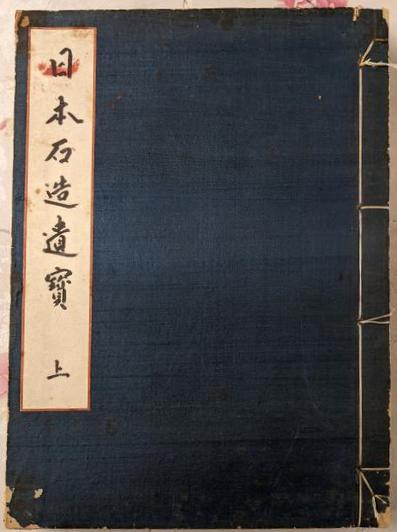 日本石造遺寶 上